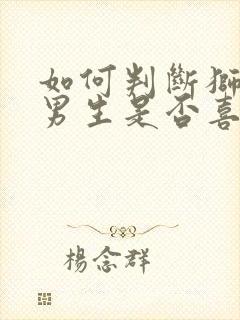 如何判斷獅
男生是否喜
楊念群